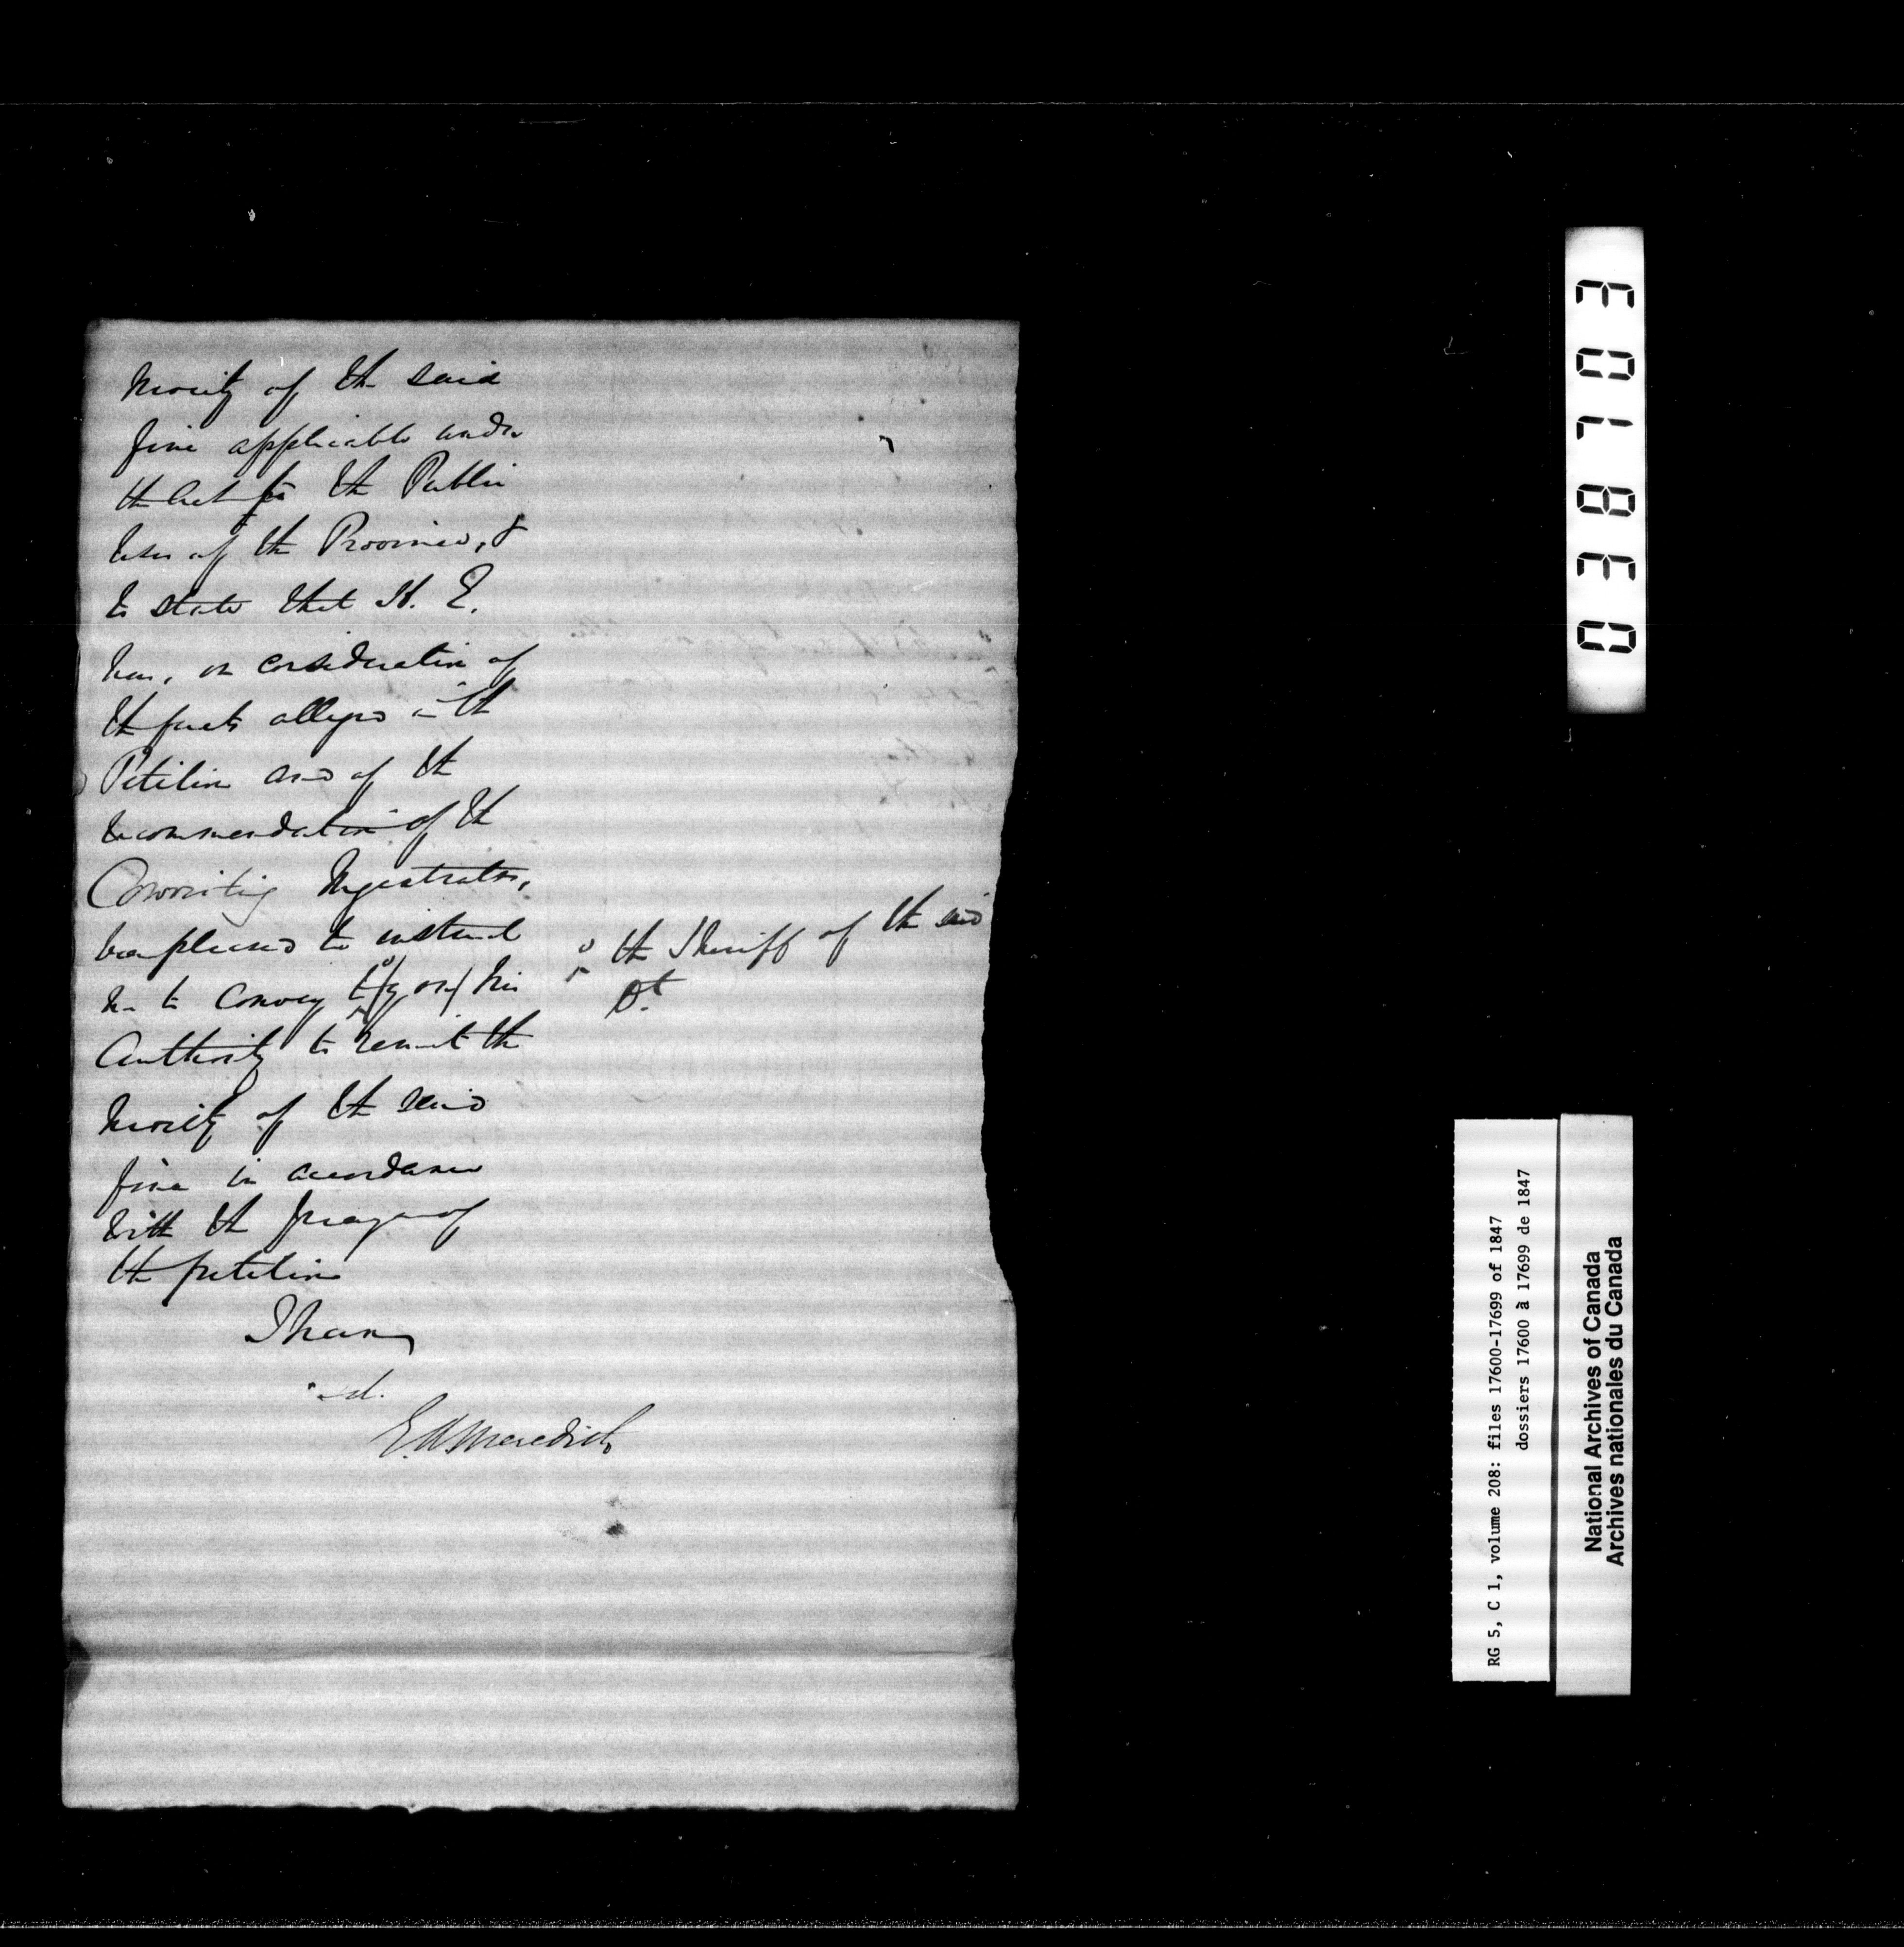 moiety of the said
fine applicable under
the Act for the Public
Uses of the Province, &
to state that H. E.
has, on consideration of
the facts alleged in the
Petition and of the
recommendation of the
Convicting Magistrates,
been pleased to instruct
me to convey to (you) his
the Sheriff of the said
Dt
Authority to remit the
moiety of the said
fine in accordance
with the prayer of
the petition
I have
&c.
E. A. Meredith
037803
RG 5, C 1, volume 208: files 17600-17699 of 1847
dossiers 17600 à 17699 de 1847
National Archives of Canada
Archives nationales du Canada